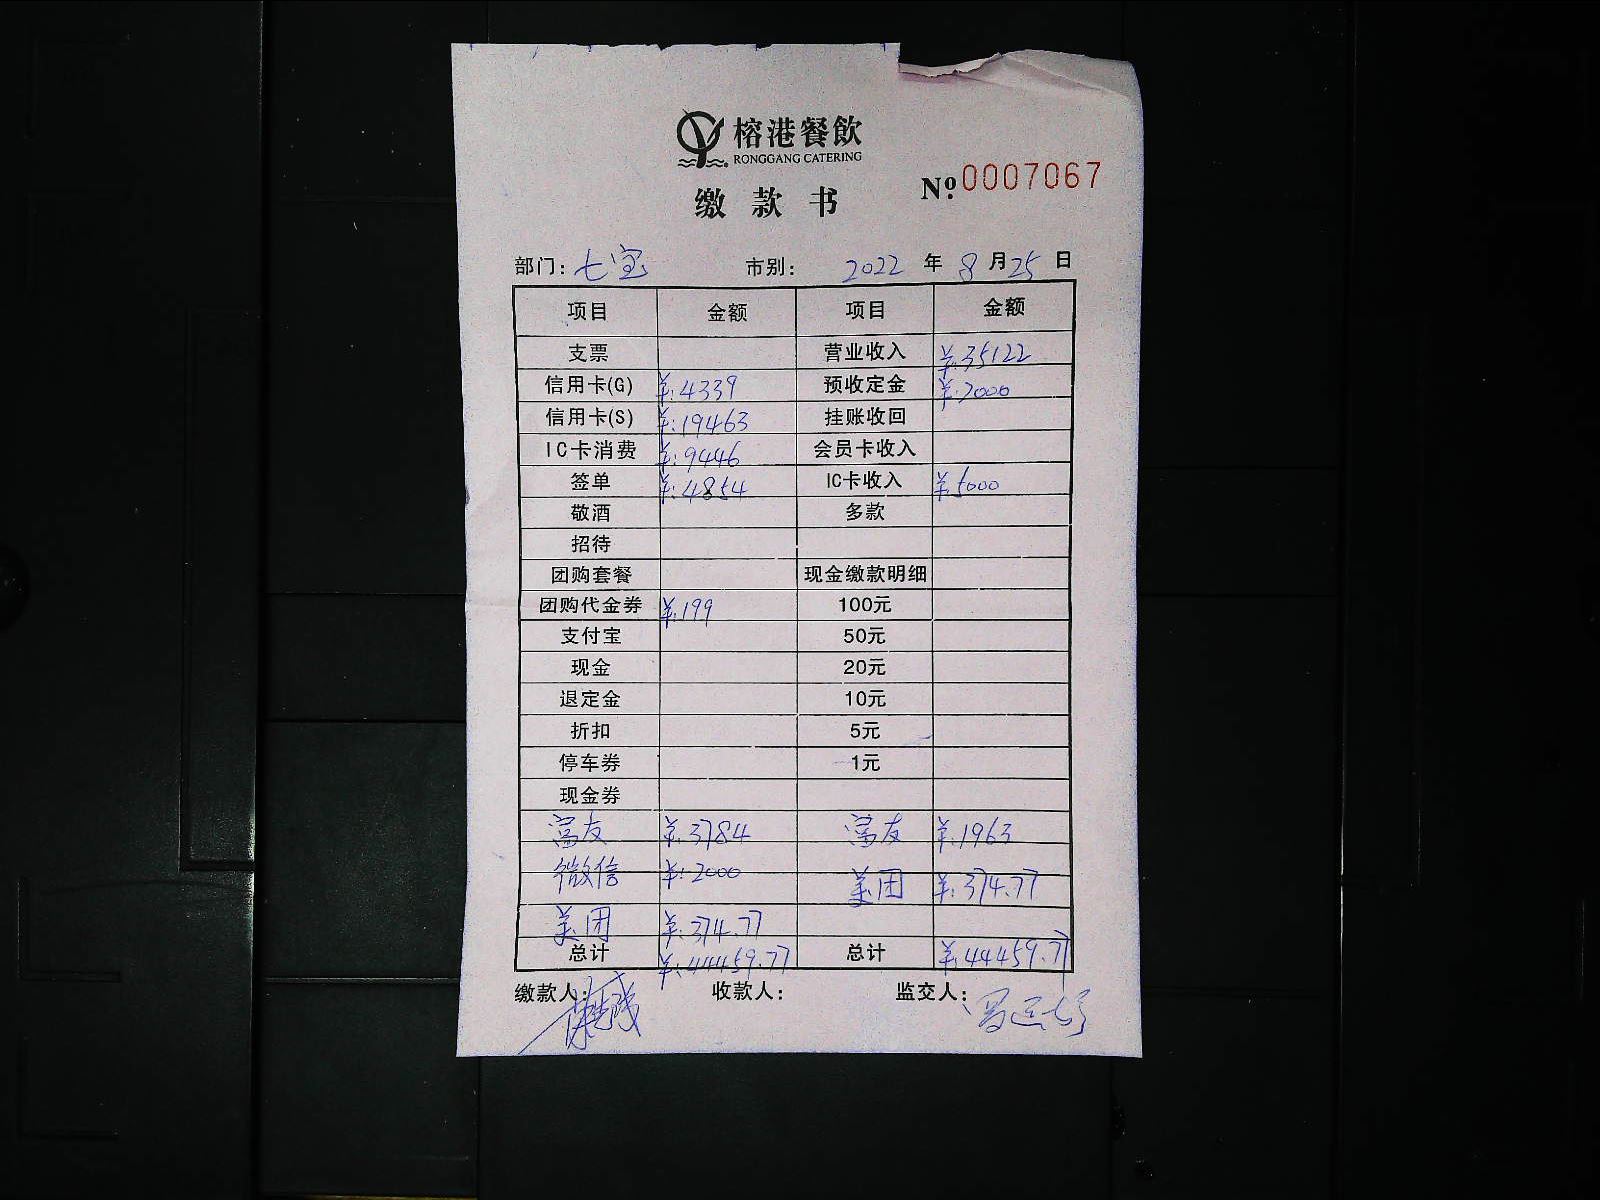 榕港餐飲
RONGGANG CATERING
缴款书
№:0007067
部门: 七宝 市别: 2022 年 8 月 25 日
项目 金额 项目 金额
支票 营业收入 ¥:35122
信用卡(G) ¥:4339 预收定金 ¥:2000
信用卡(S) ¥:19463 挂账收回
IC卡消费 ¥:9446 会员卡收入
签单 ¥:4854 IC卡收入 ¥5000
敬酒 多款
招待
团购套餐 现金缴款明细
团购代金券 ¥:199 100元
支付宝 50元
现金 20元
退定金 10元
折扣 5元
停车券 1元
现金券
富友 ¥:3784 富友 ¥:1963
微信 ¥:2000 美团 ¥:374.77
美团 ¥:374.77
总计 ¥:44459.77 总计 ¥:44459.77
缴款人: 收款人: 监交人: